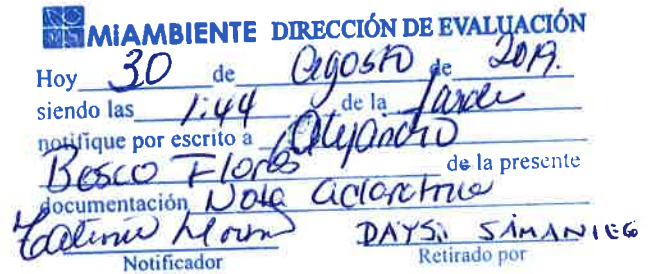 MiAMBIENTE DIRECCIÓN DE EVALUACIÓN
Hoy 30 de Agosto de 2019.
siendo las 1:44 de la tarde
notifique por escrito a Alejandro
Bosco Flores de la presente
documentación Nota aclaratoria
DAYSi SAMANIEGO
Notificador Retirado por